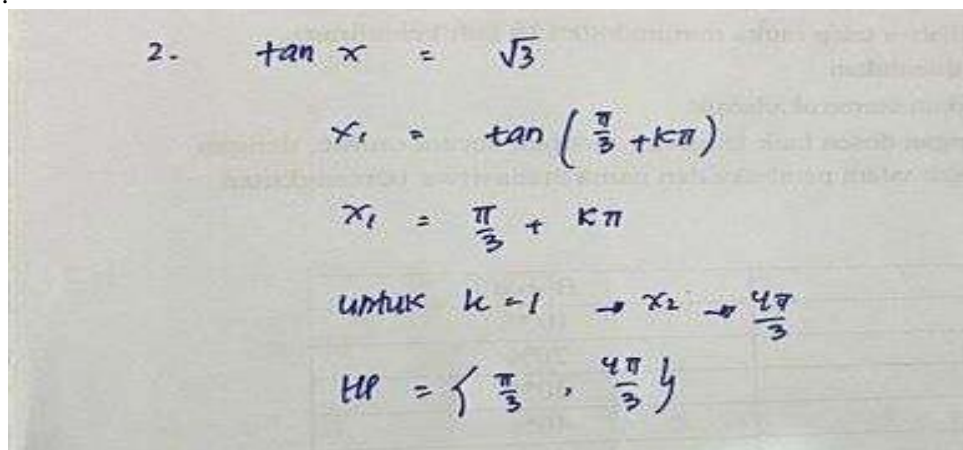 2. tan x = √3
x₁ = tan (π/3 + kπ)
x₁ = π/3 + kπ
untuk k = 1 → x₂ → 4π/3
HP = { π/3 , 4π/3 }